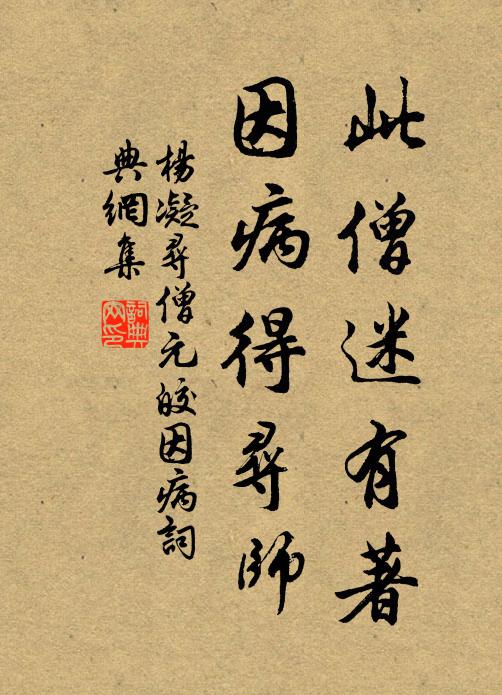 此僧迷有著
因病得尋師
楊凝尋僧元皎因病詞
典網集
詞典
网印